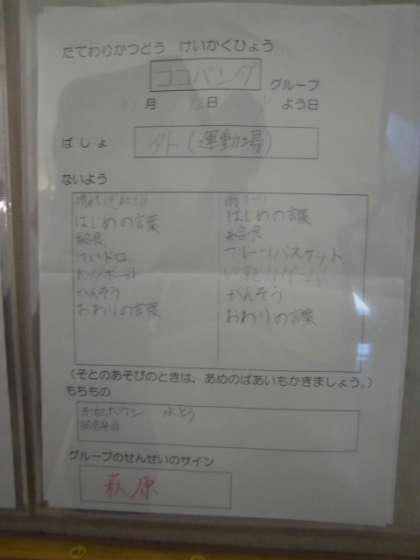 たてわりかつどう けいかくひょう
ココバング グループ
月 日 よう日
ばしょ 外(運動場)
ないよう
はじめの言葉 はじめの言葉
けいドロ フルーツバスケット
かんそう かんそう
おわりの言葉 おわりの言葉
(そとのあそびのときは、あめのばあいもかきましょう。)
もちもの
グループのせんせいのサイン
萩原